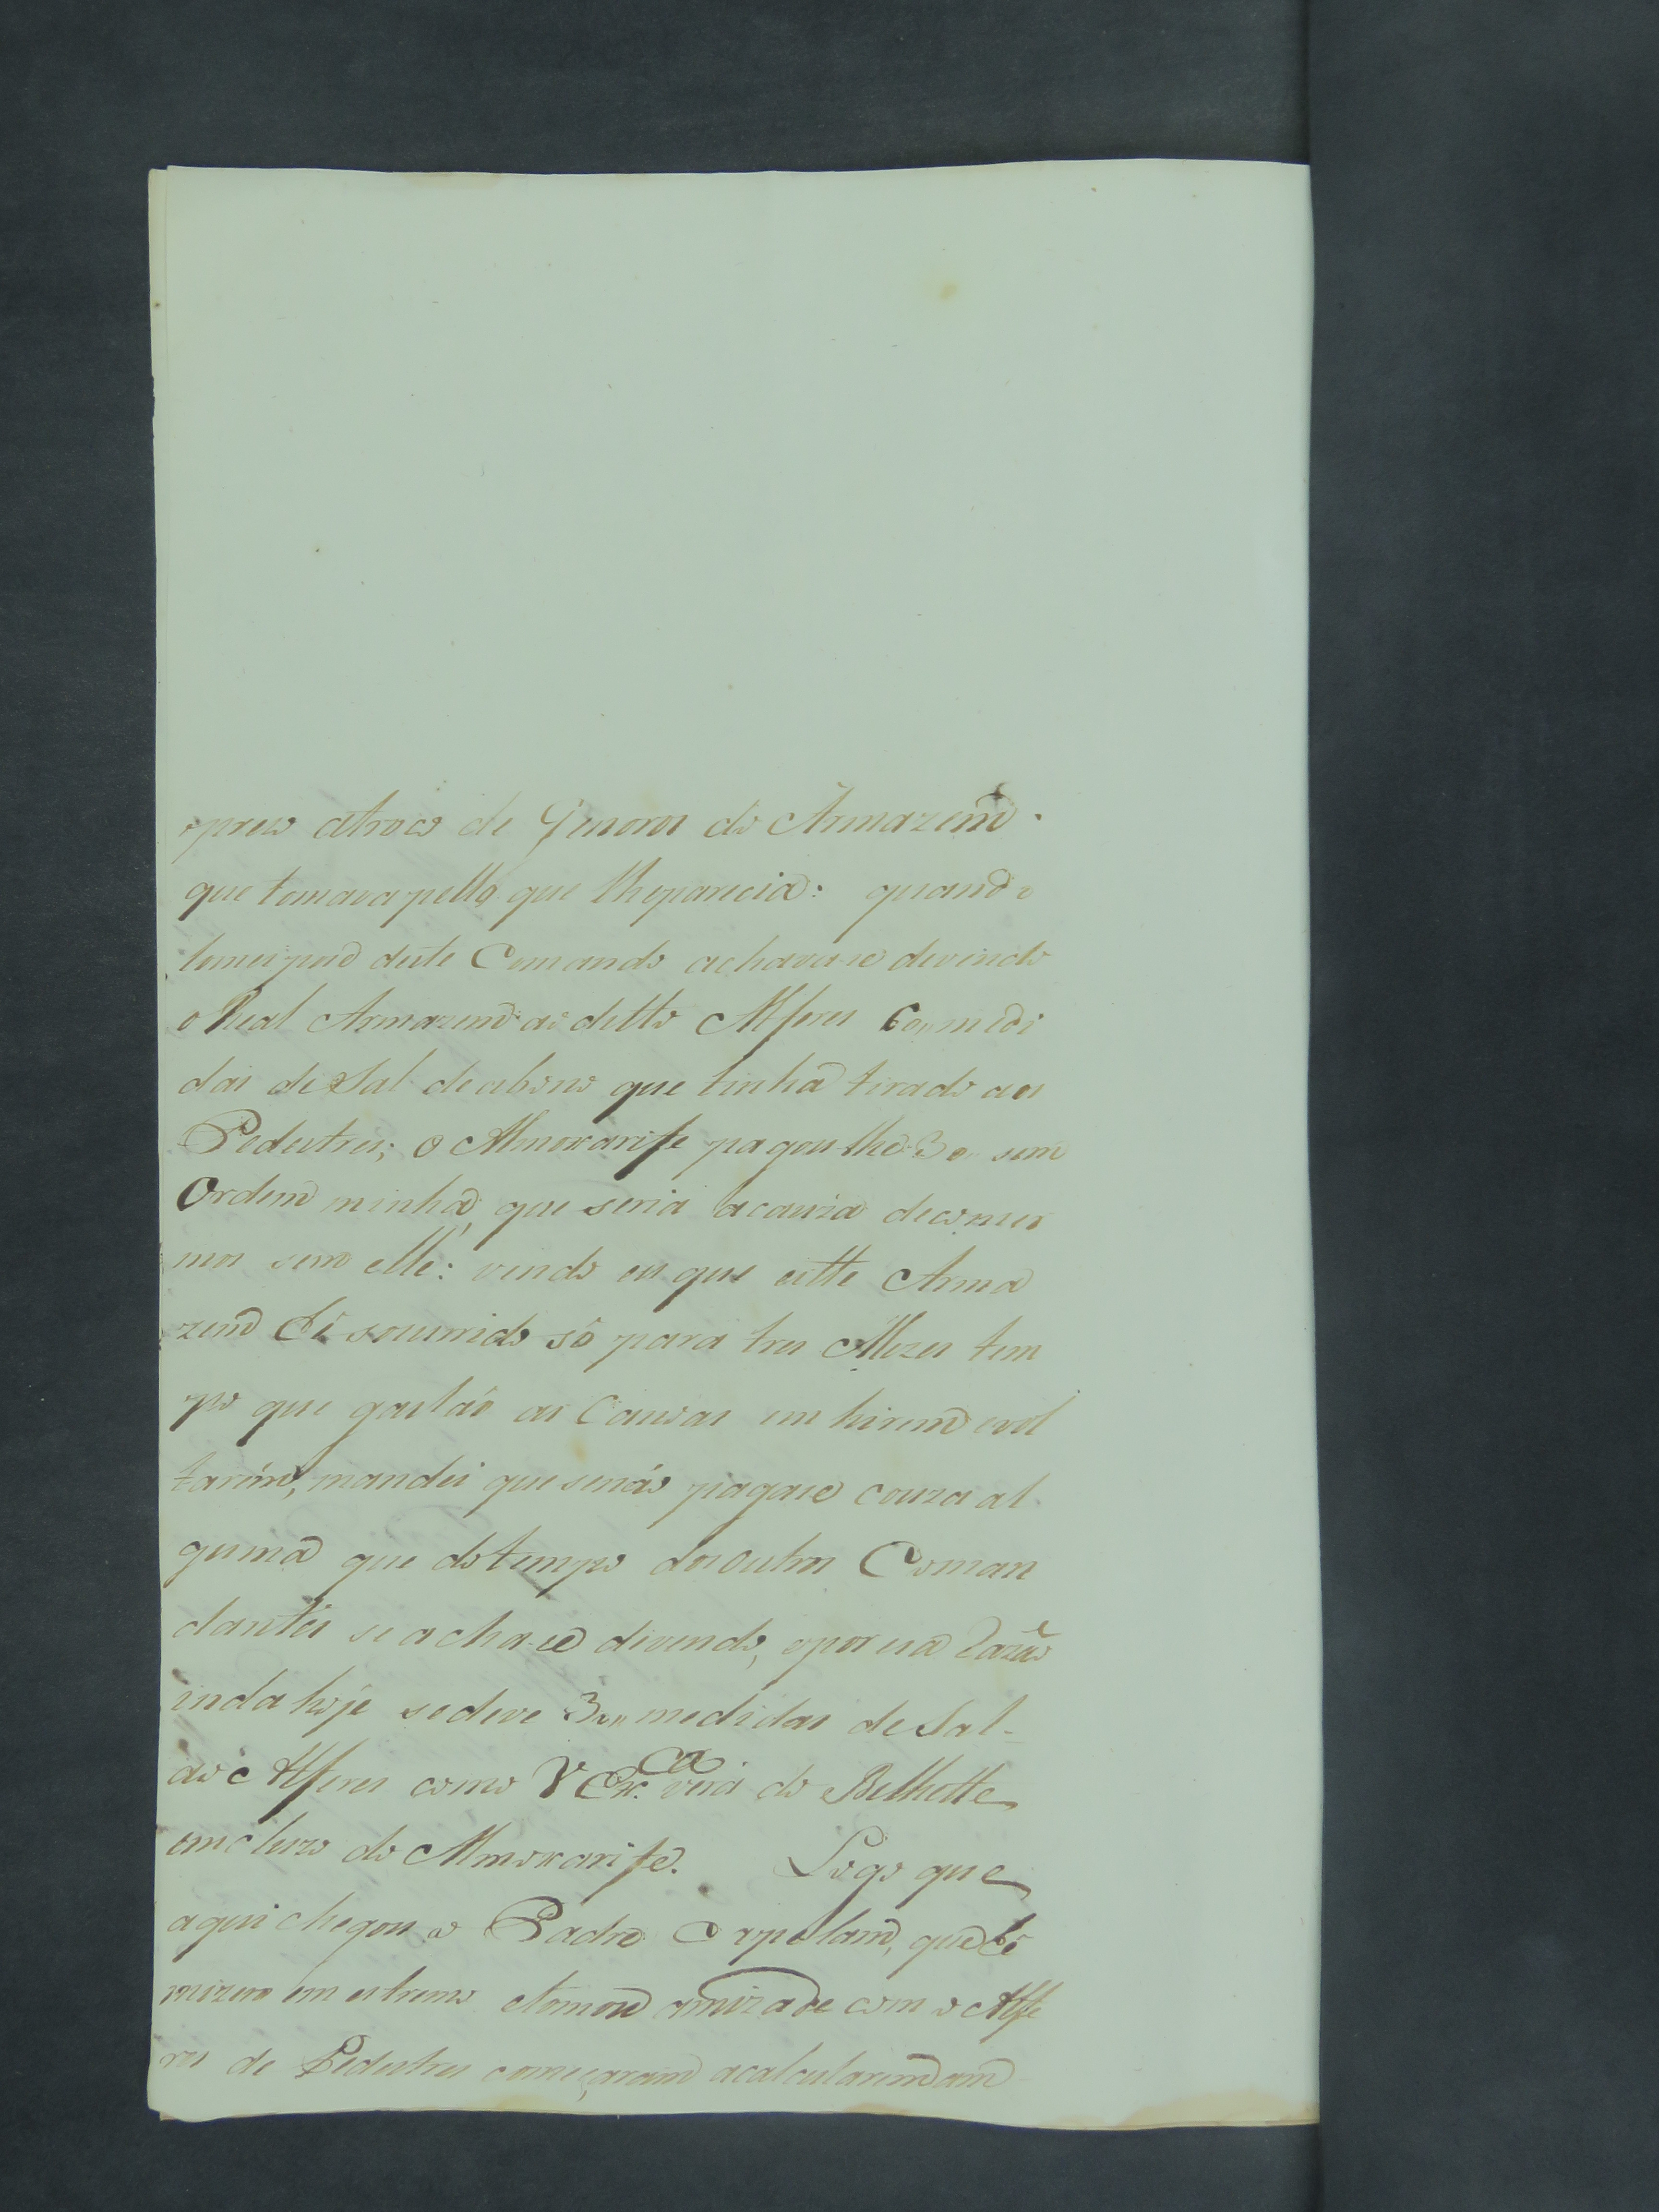 opreso atroco de Generos do Armazem.
que tomava pello que lheparecia: quando
tomei pose deste Comando achavase devendo
o Real Armazem ao ditto Alferes 60,, medi
das de Sal de abono que tinha tirado aos
Pedestres; o Almoxarife pagoulhe 30,, sem
Ordem minha, que seria acauza decomer
mos sem elle: vendo eu que este Arma
zem hé socurrido só para tres Mezes tem
po que gastão as Canoas em hirem evol
tarem, mandei que senão pagase couza al
guma que dotempo dos outros Coman
dantes se achase devendo, epor esa Razão
inda hoje sedeve 30,, medidas de Sal
ao Alferes como V Exca. verá do Bilhette
incluzo do Almoxarife. Logo que
aqui chegou o Padre Capelam, que hé
mizero em estremo etomou amizade com o Alfe
res de Pedestres começaram acalcularem am